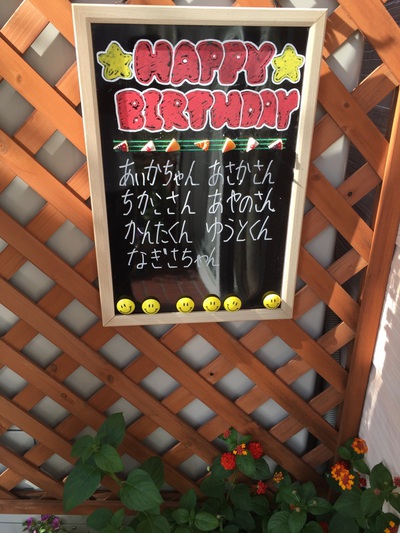 HAPPY
BIRTHDAY
あいかちゃん あさかさん
ちかこさん あやのさん
かんたくん ゆうとくん
なぎさちゃん